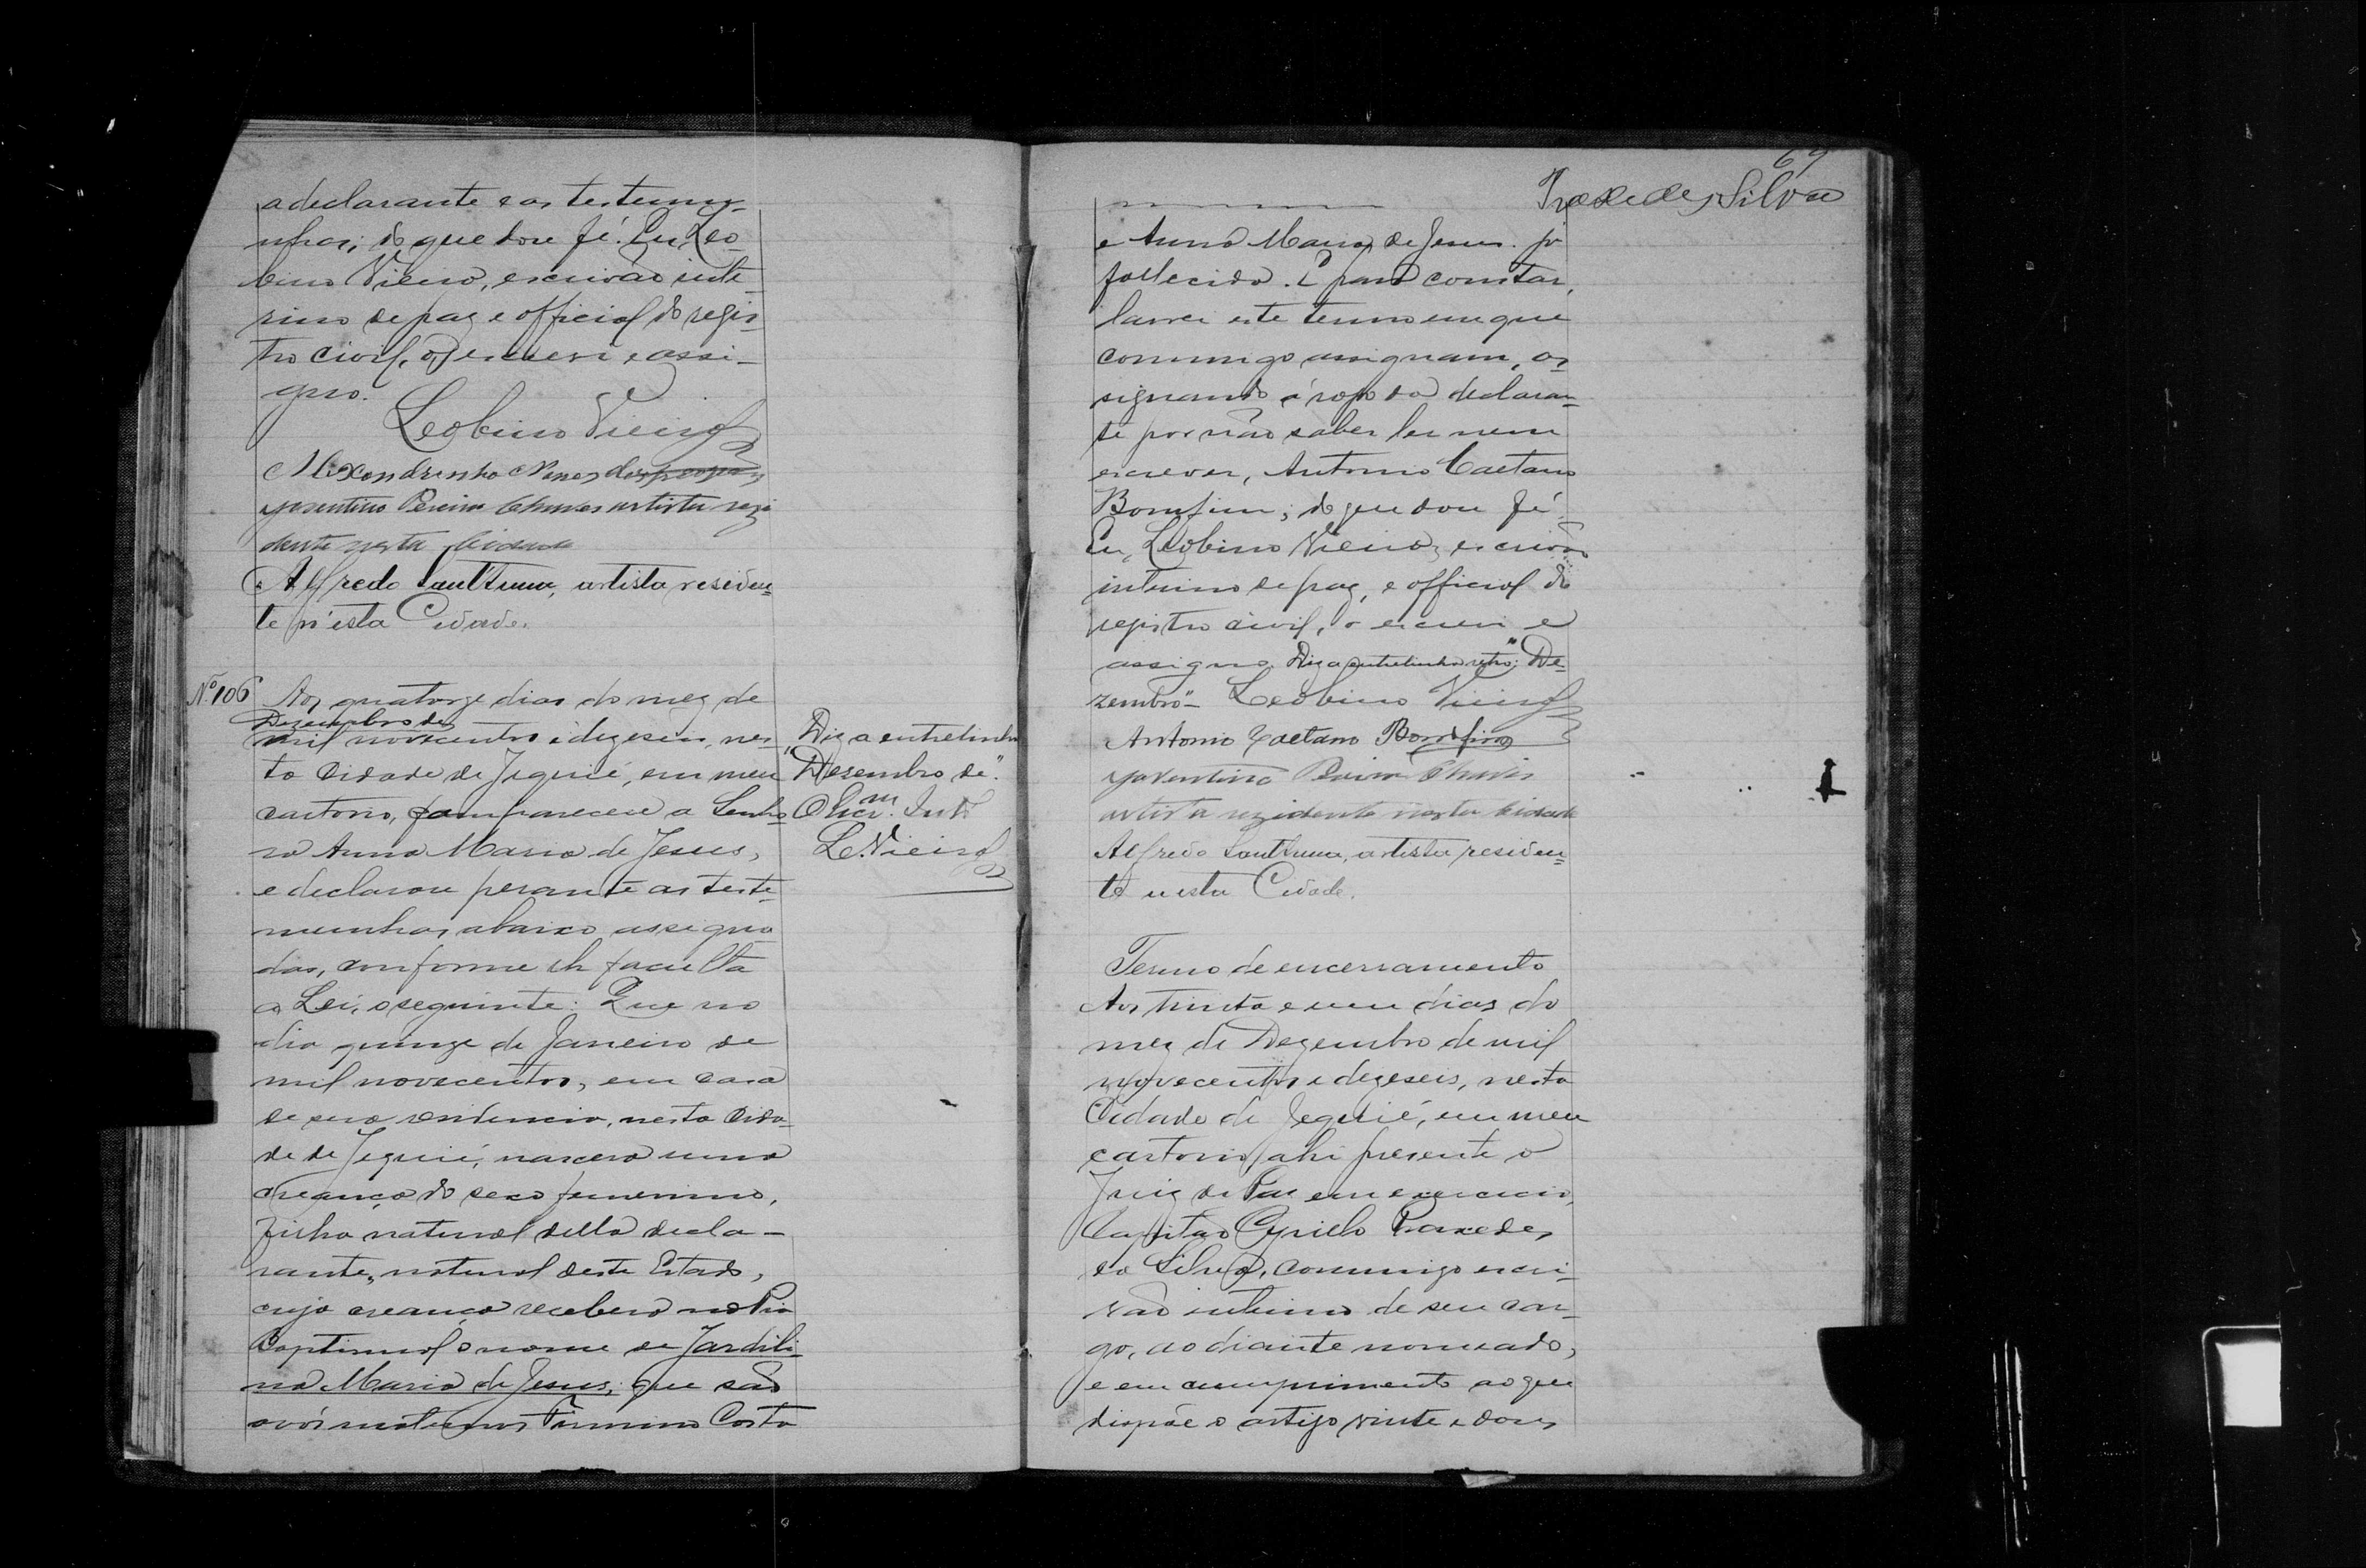 a declarante e as testemu-
nhas; do que dou fé. Eu, Leo-
bino Vieira, escrivão inte-
rino de paz e official do regis-
tro civil, o escrevi e assi-
gno.
Leobino Vieira
Alexandrinha Neves
Pereira Chaves artista rezi
dente nesta Cidade
Alfredo Sant'Anna, artista residen-
te n'esta Cidade.
Nº 106
Aos quatorze dias do mez de
Dezembro de
mil novecentos e dezeseis, nes-
ta Cidade de Jequié, em meu
cartorio, compareceu a Senho-
ra Anna Maria de Jesus,
e declarou perante as teste-
munhas abaixo assigna
das, conforme lh faculta
a Lei, o seguinte: Que no
dia quinze de Janeiro de
mil novecentos, em casa
de sua residencia, nesta Cida-
de de Jequié, nascera uma
creança do sexo femenino,
filha natural della decla-
rante, natural deste Estado,
cuja creança recebera na Pia
Baptismal o nome de Jardili-
na Maria de Jesus; que são
avós maternos Firmino Costa
Diz a entrelinha
"Dezembro de".
L. Vieira
69
Praxedes Silva
e Anna Maria de Jesus. ja
fallecida. E para constar,
lavrei este termo em que
commigo assignam, as-
signando á rogo da declaran-
te por não saber ler nem
escrever, Antonio Caetano
Bomfim; do que dou fé.
Eu, Leobino Vieira, escrivão
interino de paz, e official do
registro civil, o escrevi e
assigno. Diz a entrelinha retro: "De-
zembro"- Leobino Vieira
Antonio Caetano Bomfim
Pereira Chaves
artista rezidente nesta Cidade
Alfredo Sant'Anna, artista residen-
te nesta Cidade.
Termo de encerramento
Aos trinta e um dias do
mez de Dezembro de mil
novecentos e dezeseis, nesta
Cidade de Jequié, em meu
cartorio, ahi presente o
Juiz de Paz em exercicio,
Capitão Cyrillo Praxedes
da Silva, commigo escri-
vão interino de seu car-
go, ao diante nomeado,
e em cumprimento ao que
dispõe o artigo vinte e dous